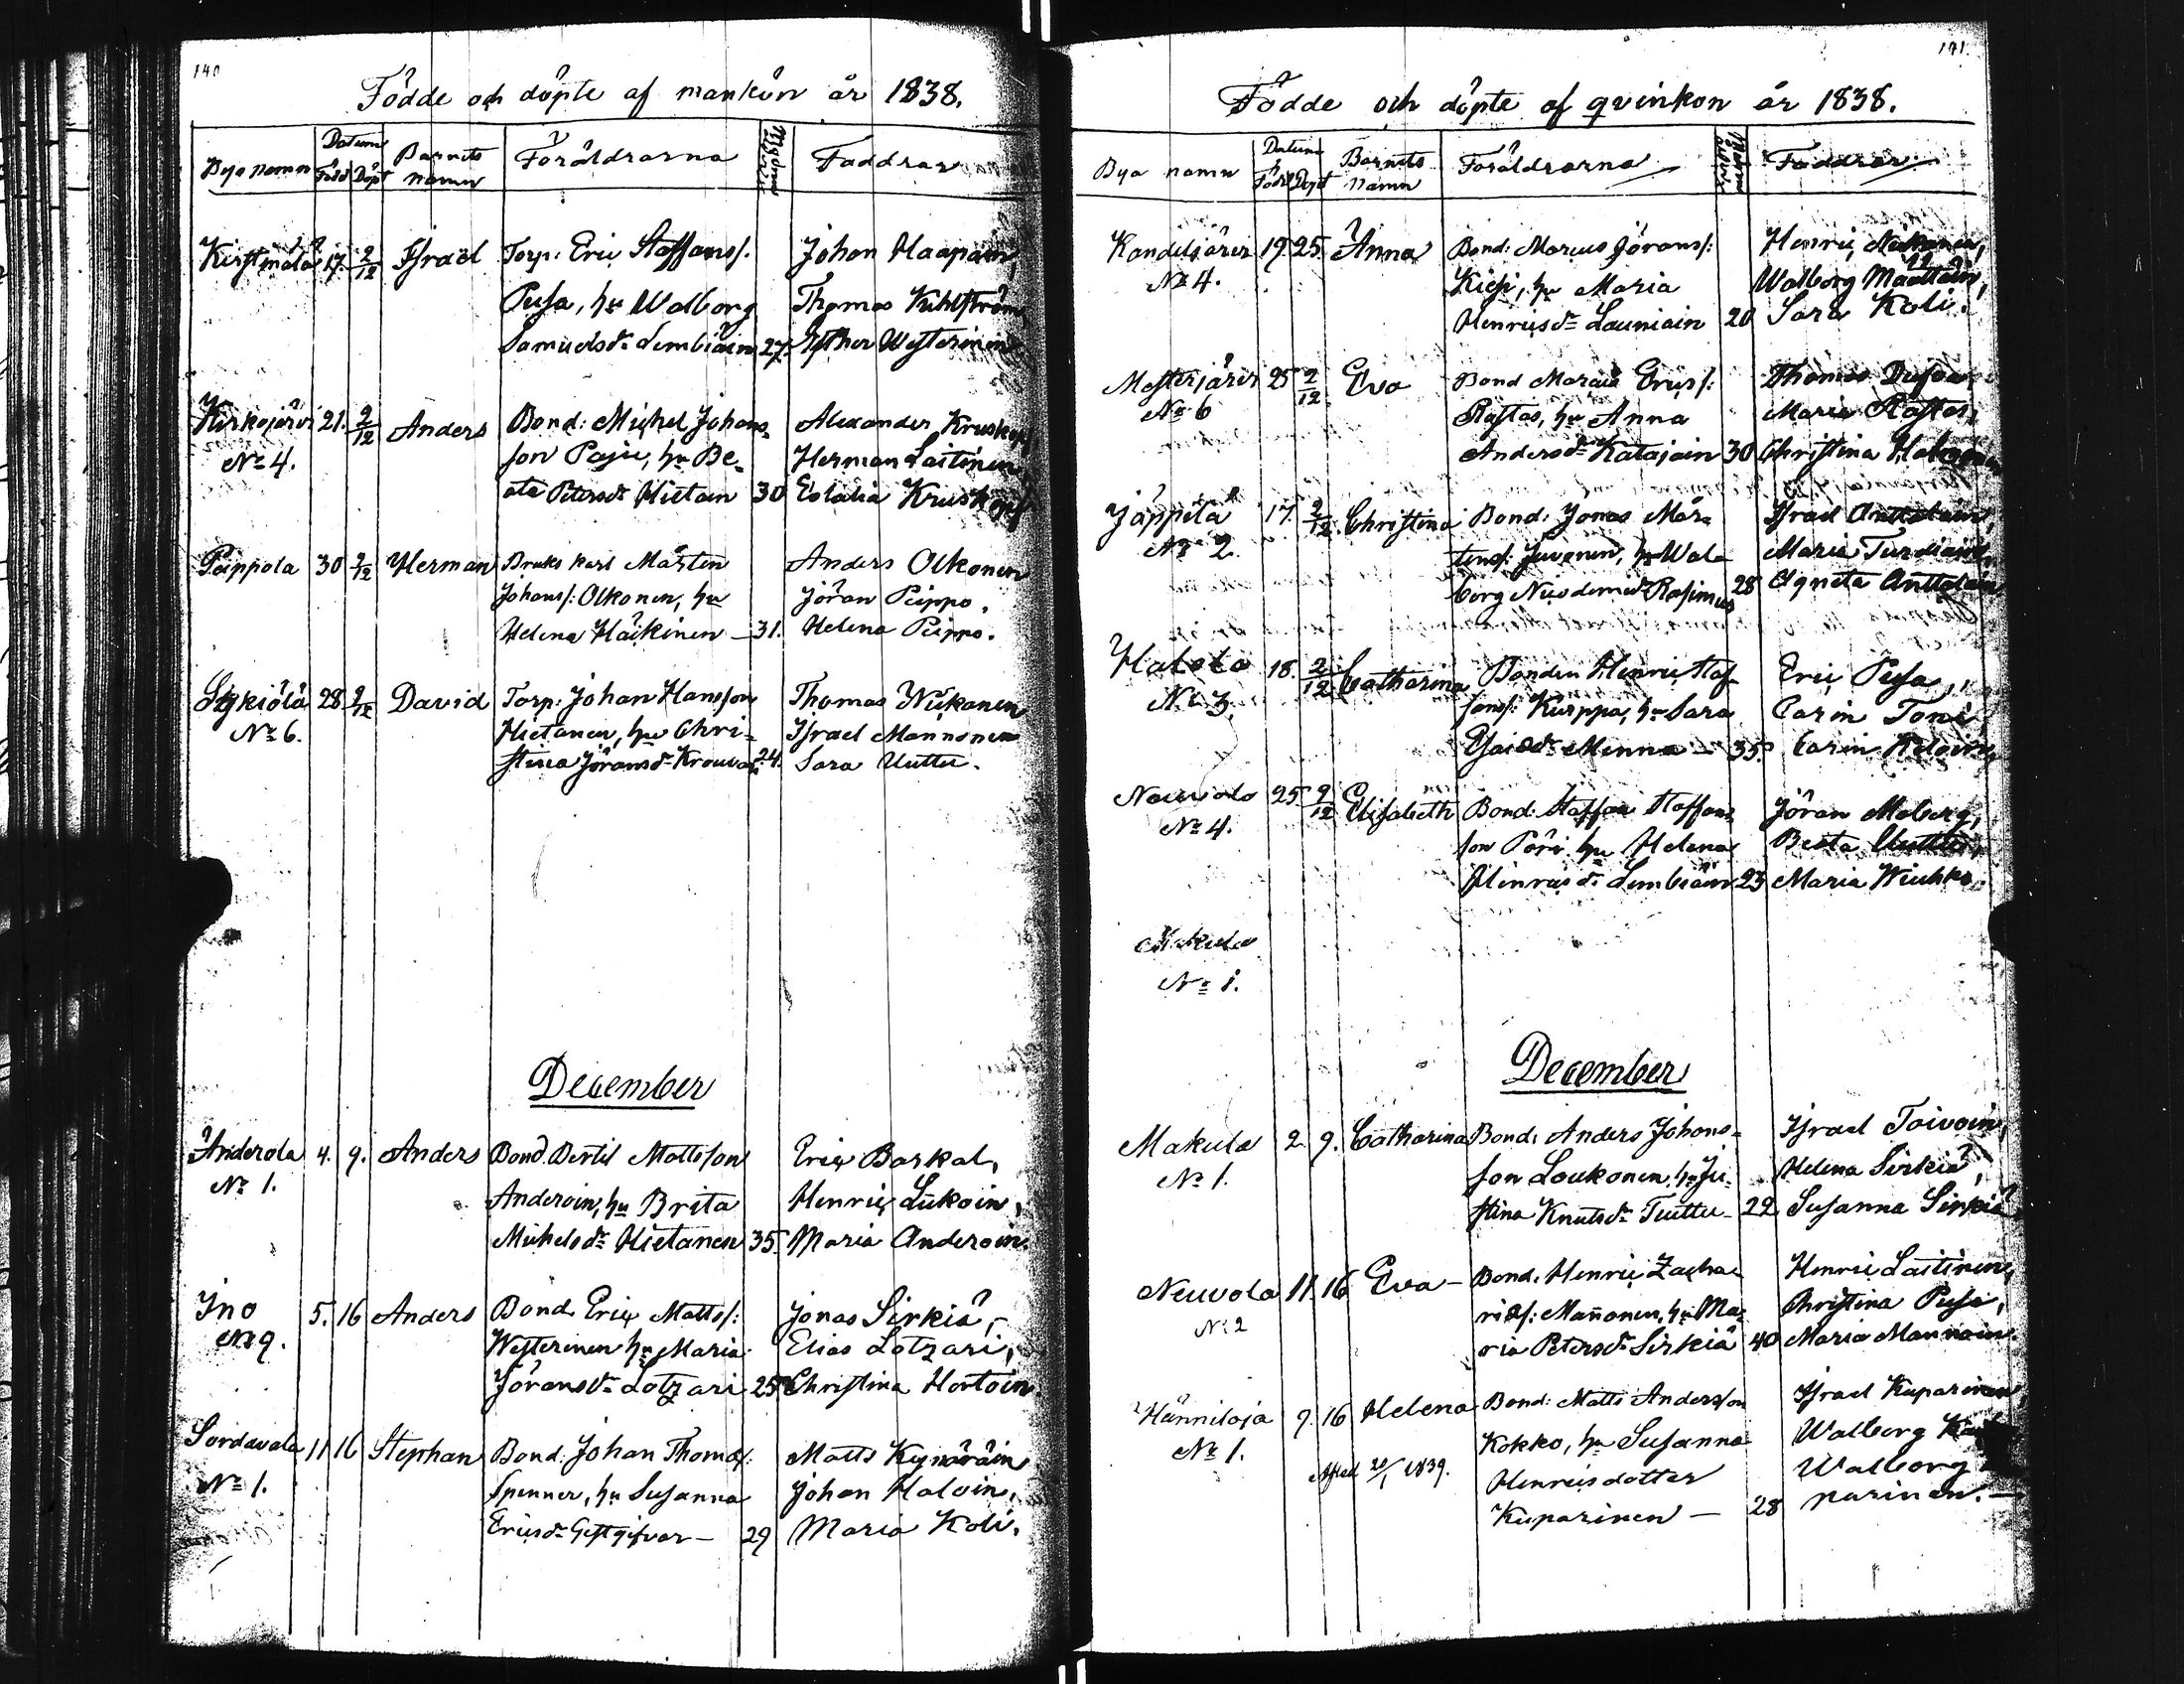 140
Födde och döpte af mankön år 1838.
Bya namn
Datum
Född
Döpt
Barnets namn
Föräldrarna
Modrens ålder
Faddrar
Kirstmälä 17. 2/12 Israel Torp: Eric Staffans/:
Pusa, hu Walborg
Samuelsdr Lembiäin 27.
Johan Haapain,
Thomas Kihlström,
Esther Westerinin
Kirkojärvi 21. 2/12 Anders Bond: Michel Johans=
No 4. son Paju, hu Be=
ata Petersdr Hietain 30
Alexander Kruskopf
Herman Laitinen,
Eolalia Kruskopf
Peippola 30 2/12 Herman Bruks karl Mårten
Johans/: Olkonen, hu
Helena Häikinen – 31.
Anders Olkonen
Jöran Peippo,
Helena Peippo.
Sykiälä 28 2/12 David Torp: Johan Hansson
No 6. Hietanen, hu Chri=
stina Jöransdr Krouvar 24.
Thomas Wiikanen
Israel Mannonen
Sara Uuttu.
December
Anderola 4. 9. Anders Bond. Bertil Mattsson
No 1. Anderoin, hu Brita
Michelsdr Hietanen 35.
Eric Barkal,
Henric Lukoin,
Maria Anderoin.
Ino 5. 16 Anders Bond. Eric Matts/:
No 9. Westerinen hu Maria
Jöransdr Lotzari 25
Jonas Sirkiä,
Elias Lotzari,
Christina Hortoin.
Sordavala 11 16 Stephan Bond: Johan Thomas/:
No 1. Spenner, hu Susanna
Ericsdr Gestgifvar – 29
Matts Kynäräin
Johan Haloin,
Maria Koli.
141.
Födde och döpte af qvinkön år 1838.
Bya namn
Datum
Född
Döpt
Barnets namn
Föräldrarna
Modrens ålder
Faddrar
Kandeljärvi 19. 25. Anna Bond: Marcus Jörans/:
No 4. Kiesi, hu Maria
Henricsdr Louniain 20
Henric
Walborg Määttäin,
Sara Koli.
Mesterjärvi 25 2/12 Eva Bond Marcus Erics/:
No 6 Rastas, hu Anna
Andersdr Katajain 30
Thomas
Maria Rastas
Christina
Jäppilä 17. 2/12 Christina Bond: Jonas Mår=
No 2. tens/: Juvonen, hu Wal=
borg Nicodemidr Rasimus 28
Israel Anttolain,
Maria Turdiain,
Agneta Anttolain
Halola 18. 2/12 Catharina Bonden Henric Staf=
No 3. fans/: Kurppa, hu Sara
Esaiædr Minna – 35.
Eric Pusa,
Carin Toni
Carin
Neuvola 25 2/12 Elisabeth Bond: Staffan Staffans=
No 4. son Pöri hu Helena
Henricsdr Lembiäin 23
Jöran Moberg,
Beata Uuttu,
Maria Wiuhko.
Makula
No 1.
December
Makula 2 9. Catharina Bond: Anders Johans=
No 1. son Loukonen, hu Ju=
stina Knutsdr Tuuttu – 22
Israel Toivoin,
Helena Sirkiä,
Susanna Sirkiä
Neuvola 11. 16 Eva – Bond. Henric Zacha=
No 2 rias/: Mañonen, hu Ma=
ria Petersdr Sirkiä 40
Henric Laitinen,
Christina Pusa,
Maria Mannoin.
Hänniloja 9. 16 Helena Bond: Matts Andersson
No 1. Kokko, hu Susanna
Afled 20/1 1839. Henricsdotter
Kuparinen – 28
Israel Kuparinen
Walborg
Walborg
parinen. –